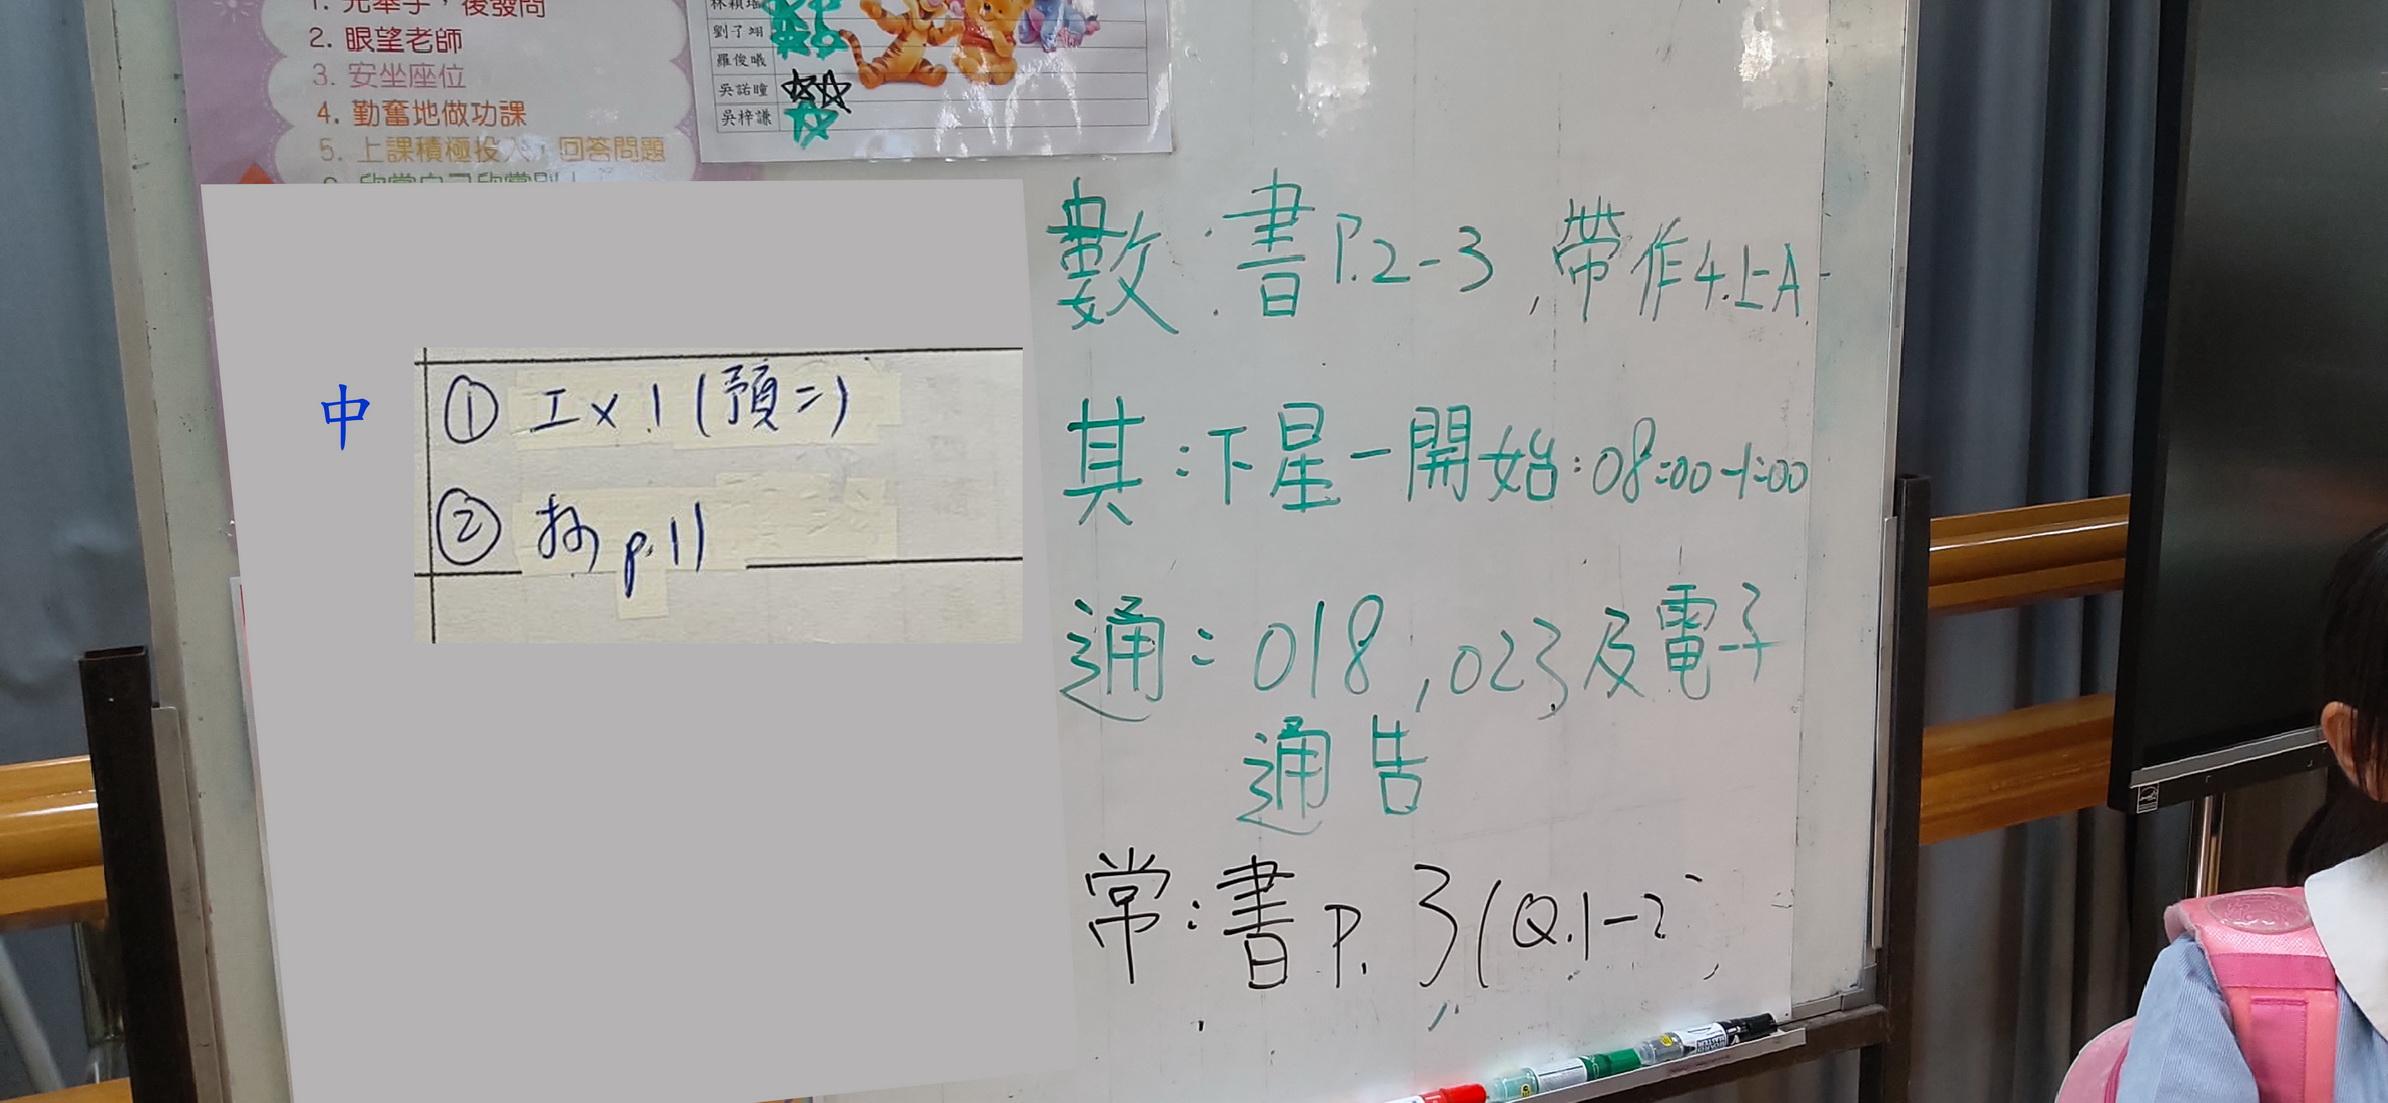 1. 先舉手，後發問
2. 眼望老師
3. 安坐座位
4. 勤奮地做功課
5. 上課積極投入，回答問題
劉了翊
羅俊曦
吳諾瞳
吳梓謙
中
① 工x1(預二)
② p.11
數:書P.2-3,帶作4上A
其:下星一開始:08:00-1:00
通:018,023及電子
通告
常:書P.3(Q.1-2)